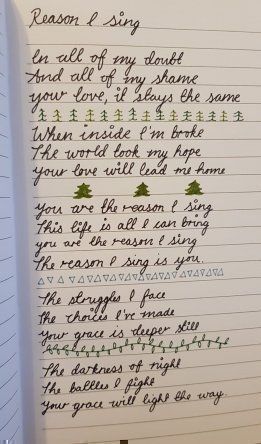 Reason I sing
In all of my doubt
And all of my shame
your love, it stays the same
When inside I'm broke
The world took my hope
your love will lead me home
you are the reason I sing
This life is all I can bring
you are the reason I sing
The reason I sing is you.
The struggles I face
The choices I've made
your grace is deeper still
The darkness of night
The battles I fight
your grace will light the way.